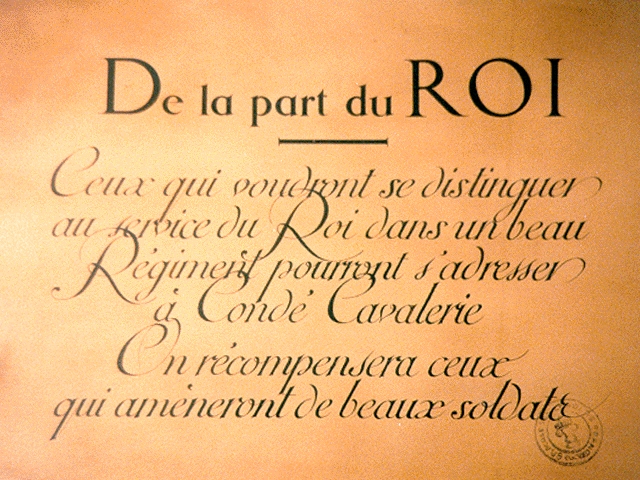 De la part du ROI
Ceux qui voudront se distinguer
au service du Roi dans un beau
Régiment pourront s'adresser
à Condé Cavalerie
On récompensera ceux
qui amèneront de beaux soldats